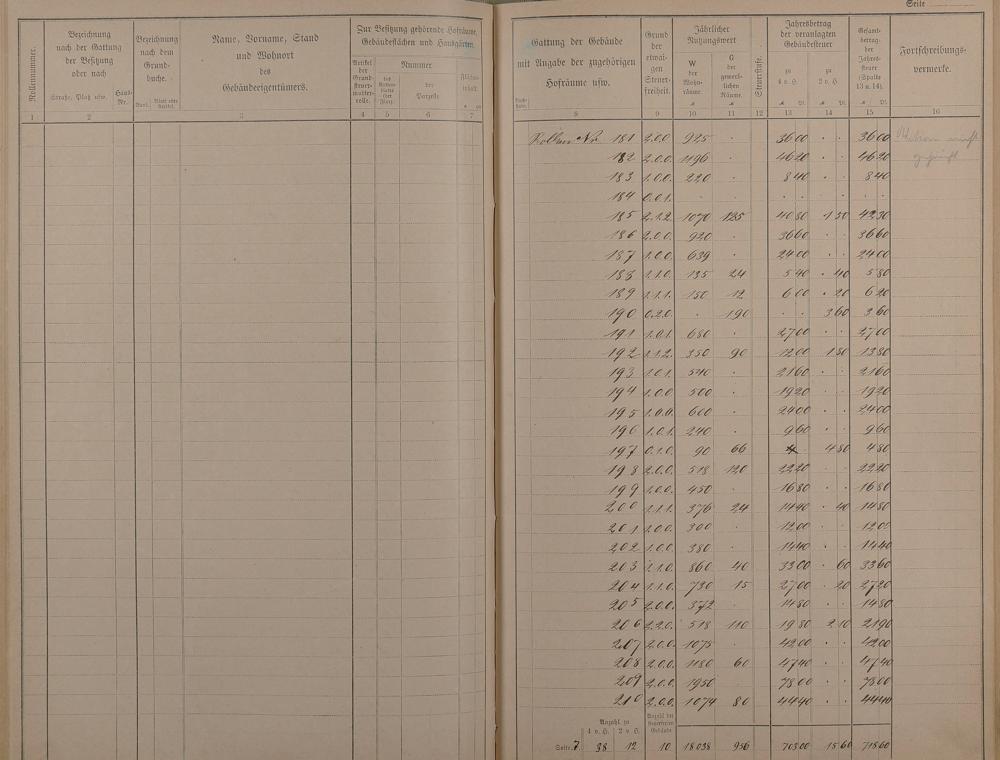 Seite
Rollennummer.
Bezeichnung
nach der Gattung
der Besitzung
oder nach
Straße, Platz usw.
Haus-
Nr.
Bezeichnung
nach dem
Grund-
buche.
Band.
Blatt oder
Artikel.
Name, Vorname, Stand
und Wohnort
des
Gebäudeeigentümers.
Zur Besitzung gehörende Hofräume,
Gebäudeflächen und Hausgärten.
Artikel
der
Grund-
steuer-
mutter-
rolle.
Nummer
des
Karten-
blatts
(der
Flur).
der
Parzelle.
Flächen-
inhalt.
Gattung der Gebäude
mit Angabe der zugehörigen
Hofräume usw.
Grund
der
etwai-
gen
Steuer-
freiheit.
Jährlicher
Nutzungswert
W
der
Wohn-
räume.
G
der
gewerb-
lichen
Räume.
Steuerstufe.
Jahresbetrag
der veranlagten
Gebäudesteuer
zu
4 v. H.
zu
2 v. H.
Gesamt-
betrag
der
Jahres-
steuer
(Spalte
13 u. 14).
Fortschreibungs-
vermerke.
1 2 3 4 5 6 7 8 9 10 11 12 13 14 15 16
Rollen Nr. 181 2.0.0 925 . 3600 . . 3600
182 2.0.0. 1196 . 4620 . . 4620
183 1.0.0. 220 . 840 . . 840
184 0.0.1. . . . . . . .
185 2.1.2. 1070 125 4080 . 150 4230
186 2.0.0. 920 . 3660 . . 3660
187 1.0.0. 639 . 2400 . . 2400
188 1.1.0. 135 24 540 . 40 580
189 1.1.1. 150 12 600 . 20 620
190 0.2.0. . 190 . . 360 360
191 1.0.1. 680 . 2700 . . 2700
192 1.1.2. 350 90 1200 . 180 1380
193 1.0.1. 540 . 2160 . . 2160
194 1.0.0 500 . 1920 . . 1920
195 1.0.0. 600 . 2400 . . 2400
196 1.0.1. 240 . 960 . . 960
197 0.1.0. 90 66 . 480 480
198 2.0.0. 518 120 2220 . . 2220
199 1.0.0. 450 . 1680 . . 1680
200 1.1.1. 376 24 1440 . 40 1480
201 1.0.0. 300 . 1200 . . 1200
202 1.0.0. 380 . 1440 . . 1440
203 1.1.0. 860 40 3300 . 60 3360
204 1.1.0. 730 15 2700 . 20 2720
205 2.0.0. 372 . 1480 . . 1480
206 2.2.0. 518 110 1980 210 2190
207 2.0.0. 1075 . 4200 . . 4200
208 2.0.0. 1180 60 4740 . . 4740
209 2.0.0. 1950 7800 . . 7800
210 2.0.0. 1074 80 4440 . . 4440
Anzahl zu
4 v. H. 2 v. H.
Anzahl der
steuerfreien
Gebäude
Seite 7 38 12 10 18038 956 70300 1560 71860